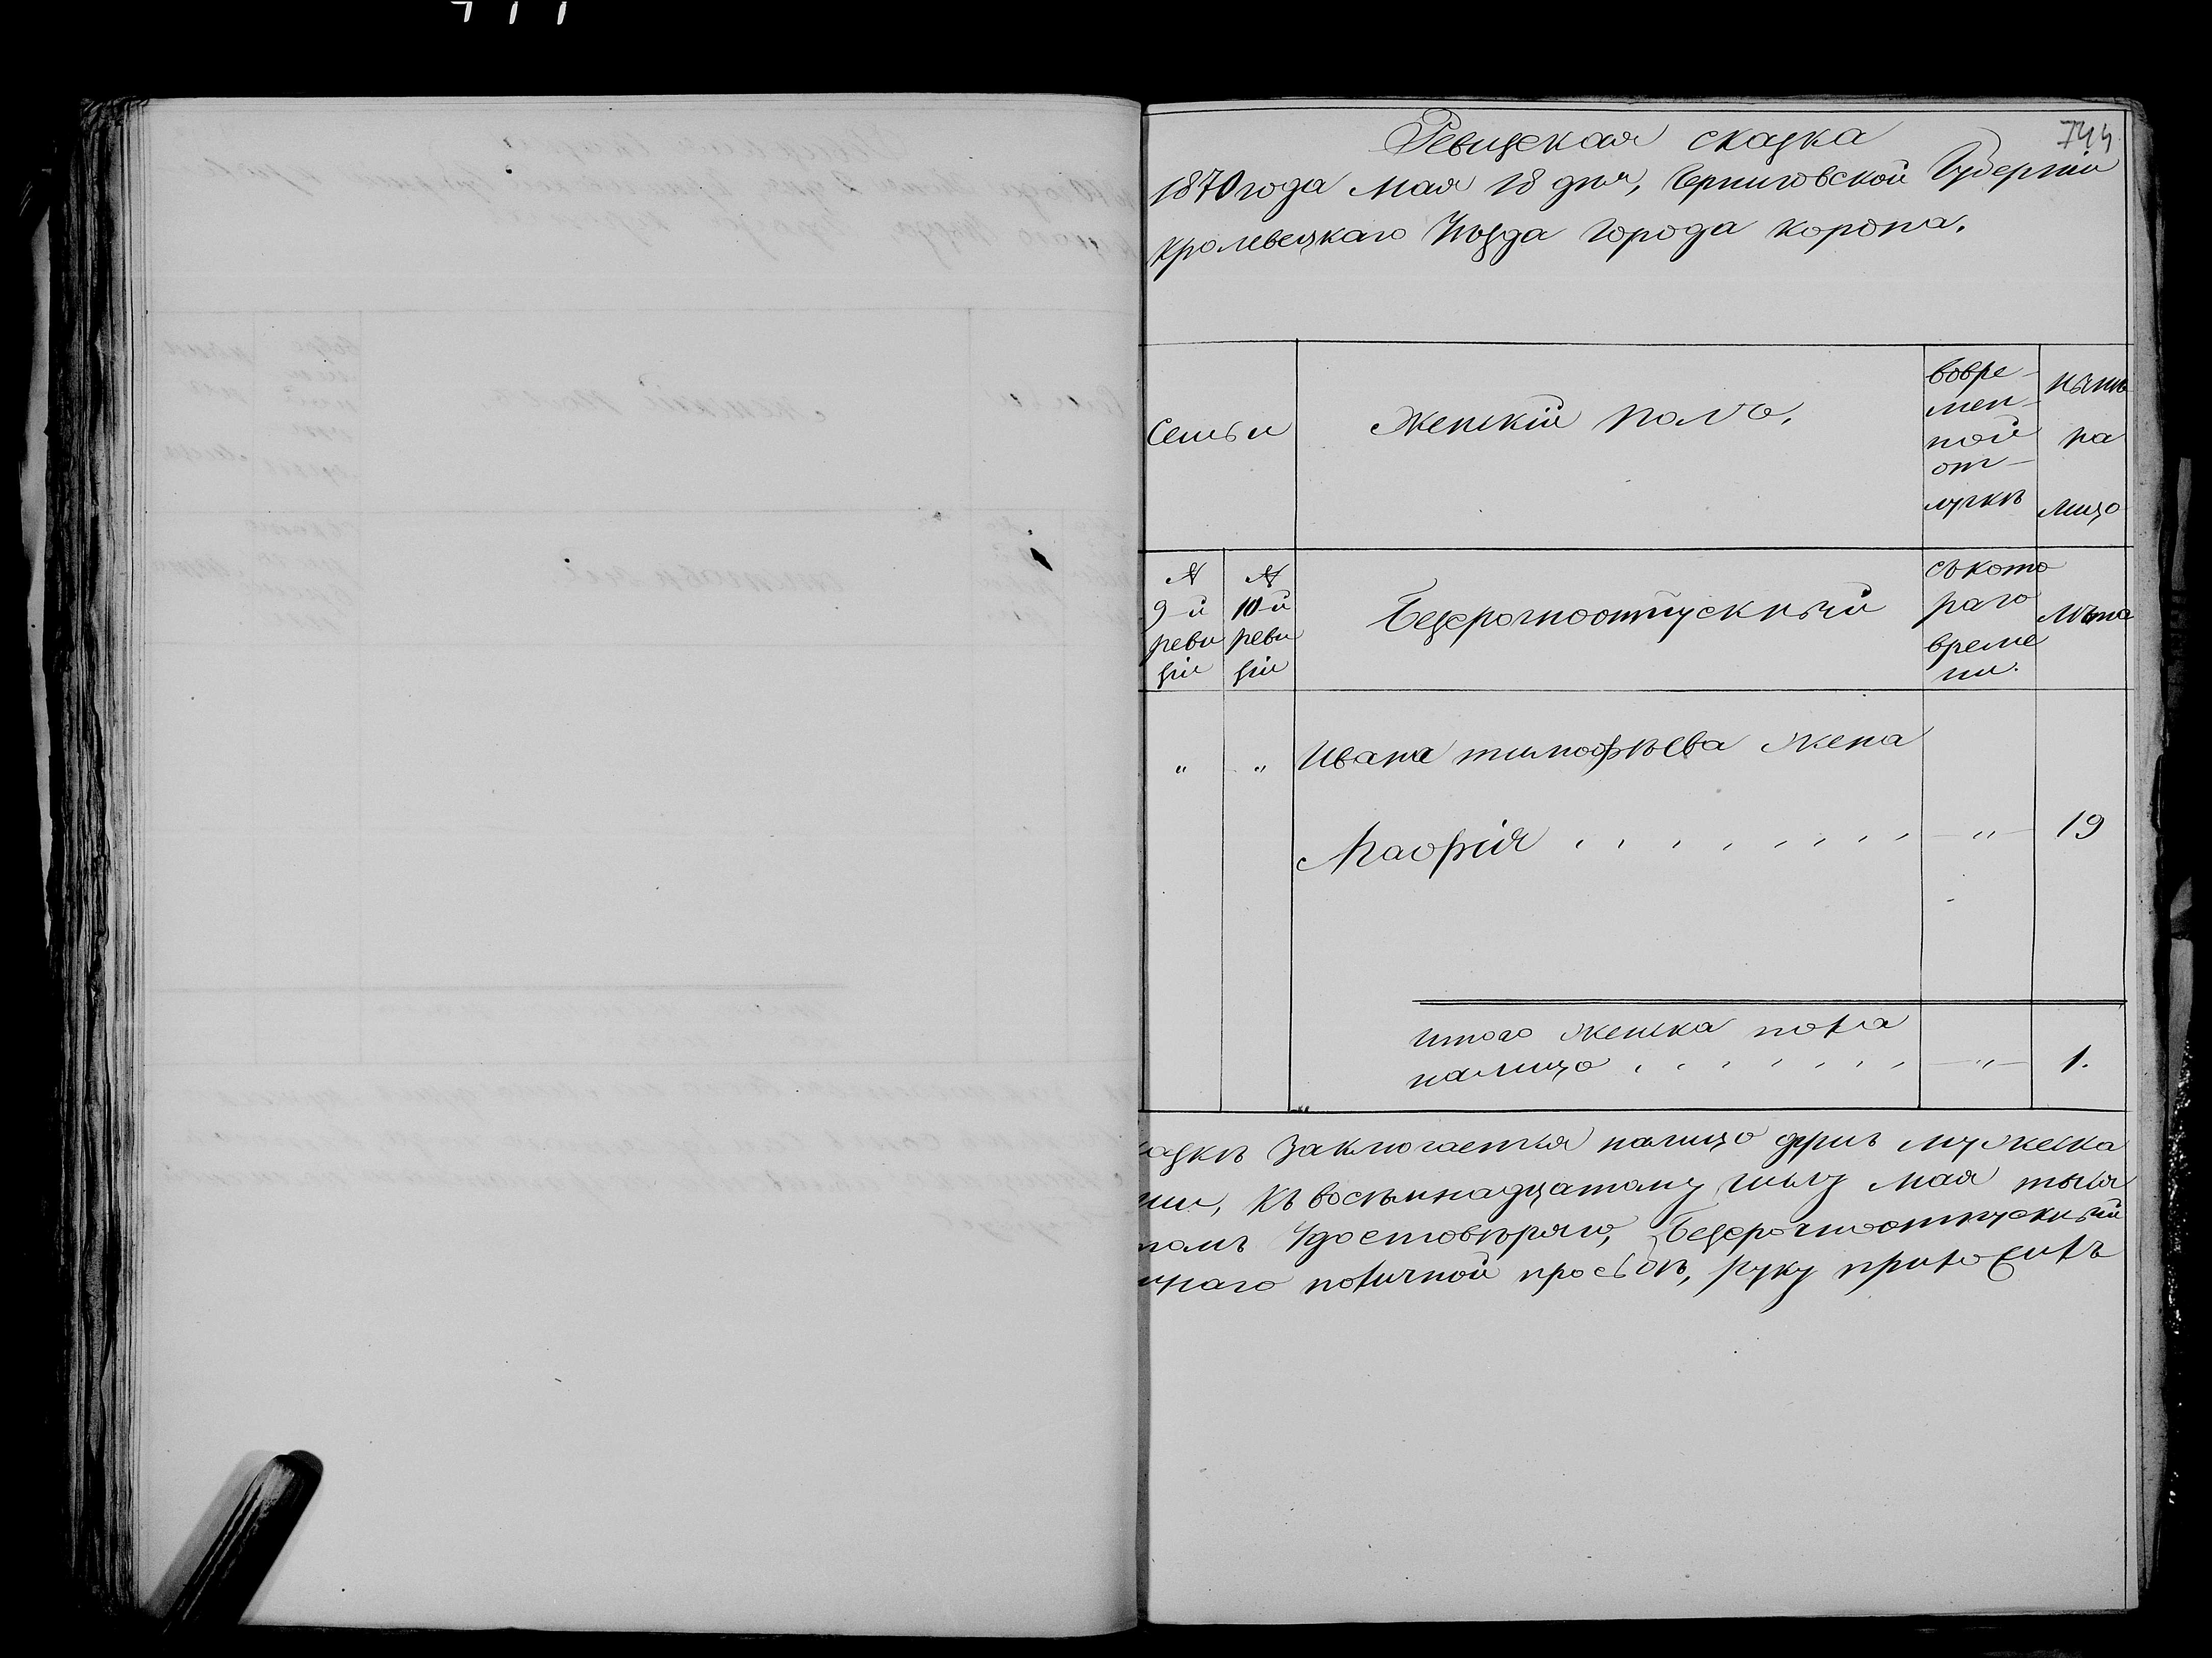 744
Ревизская сказка
1870 года мая 18 дня, Черниговской Губерніи
Кролевецкаго Уѣзда города Коропа.
Семьи
Женскій полъ.
вовре-
мен-
ной
от-
лучкѣ
нынѣ
на
лицо
№ 9-й реви зіи
№ 10-й реви зіи
Безсрочноотпускный
съ кото
раго
време
ни.
лѣта
" " Ивана тимофѣева жена
" 19
итого женска пола
налицо " 1.
азкѣ Заключается налицо мужеска
ни, Къ восѣмнадцатому числу мая тыся
Удостовѣряю, Безсрочноотпускный
наго поличной просьбѣ, руку приложилъ